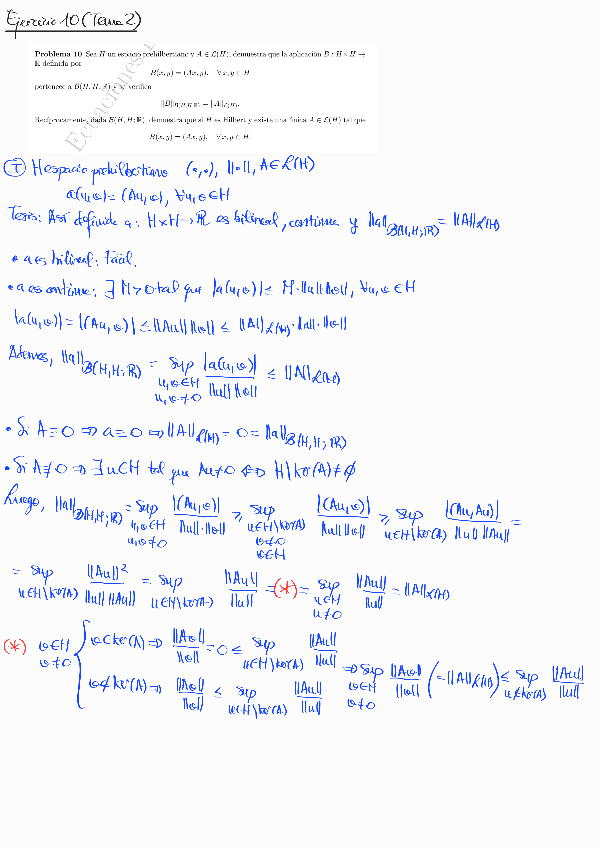 Ejercicio 10 (Tema 2)
Problema 10 Sea H un espacio prehilbertiano y A ∈ ℒ(H), demuestra que la aplicación B : H × H →
ℝ definida por
B(x, y) = (Ax, y), ∀ x, y ∈ H
pertenece a ℬ(H, H; ℝ) y se verifica
‖B‖ℬ(H,H;ℝ) = ‖A‖ℒ(H).
Recíprocamente, dada ℬ(H, H; ℝ), demuestra que si H es Hilbert y existe una única A ∈ ℒ(H) tal que
B(x, y) = (Ax, y), ∀ x, y ∈ H.
Ecuaciones
(I) H espacio prehilbertiano (∘,∘), ‖∘‖, A ∈ ℒ(H)
a(u,v) = (Au,v), ∀u,v ∈ H
Tesis: Así definida a: H×H → ℝ es bilineal, continua y ‖a‖ℬ(H,H;ℝ) = ‖A‖ℒ(H)
• a es bilineal: Fácil.
• a es continua: ∃ M>0 tal que |a(u,v)| ≤ M·‖u‖‖v‖, ∀u,v ∈ H
|a(u,v)| = |(Au,v)| ≤ ‖Au‖‖v‖ ≤ ‖A‖ℒ(H)·‖u‖·‖v‖
Además, ‖a‖ℬ(H,H;ℝ) = sup u,v∈H u,v≠0 |a(u,v)| / ‖u‖‖v‖ ≤ ‖A‖ℒ(H)
• Si A≡0 ⇒ a≡0 ⇒ ‖A‖ℒ(H) = 0 = ‖a‖ℬ(H,H;ℝ)
• Si A≠0 ⇒ ∃ u∈H tal que Au≠0 ⇔ H\Ker(A) ≠ ∅
Luego, ‖a‖ℬ(H,H;ℝ) = sup u,v∈H u,v≠0 |(Au,v)| / ‖u‖·‖v‖ ≥ sup u∈H\Ker(A) v≠0 v∈H |(Au,v)| / ‖u‖‖v‖ ≥ sup u∈H\Ker(A) |(Au,Au)| / ‖u‖‖Au‖ =
= sup u∈H\Ker(A) ‖Au‖² / ‖u‖‖Au‖ = sup u∈H\Ker(A) ‖Au‖ / ‖u‖ = (*) = sup u∈H u≠0 ‖Au‖ / ‖u‖ = ‖A‖ℒ(H)
(*) v∈H v≠0 { v∈Ker(A) ⇒ ‖Av‖ / ‖v‖ = 0 ≤ sup u∈H\Ker(A) ‖Au‖ / ‖u‖
v∉Ker(A) ⇒ ‖Av‖ / ‖v‖ ≤ sup u∈H\Ker(A) ‖Au‖ / ‖u‖ ⇒ sup v∈H v≠0 ‖Av‖ / ‖v‖ (= ‖A‖ℒ(H)) ≤ sup u∉Ker(A) ‖Au‖ / ‖u‖